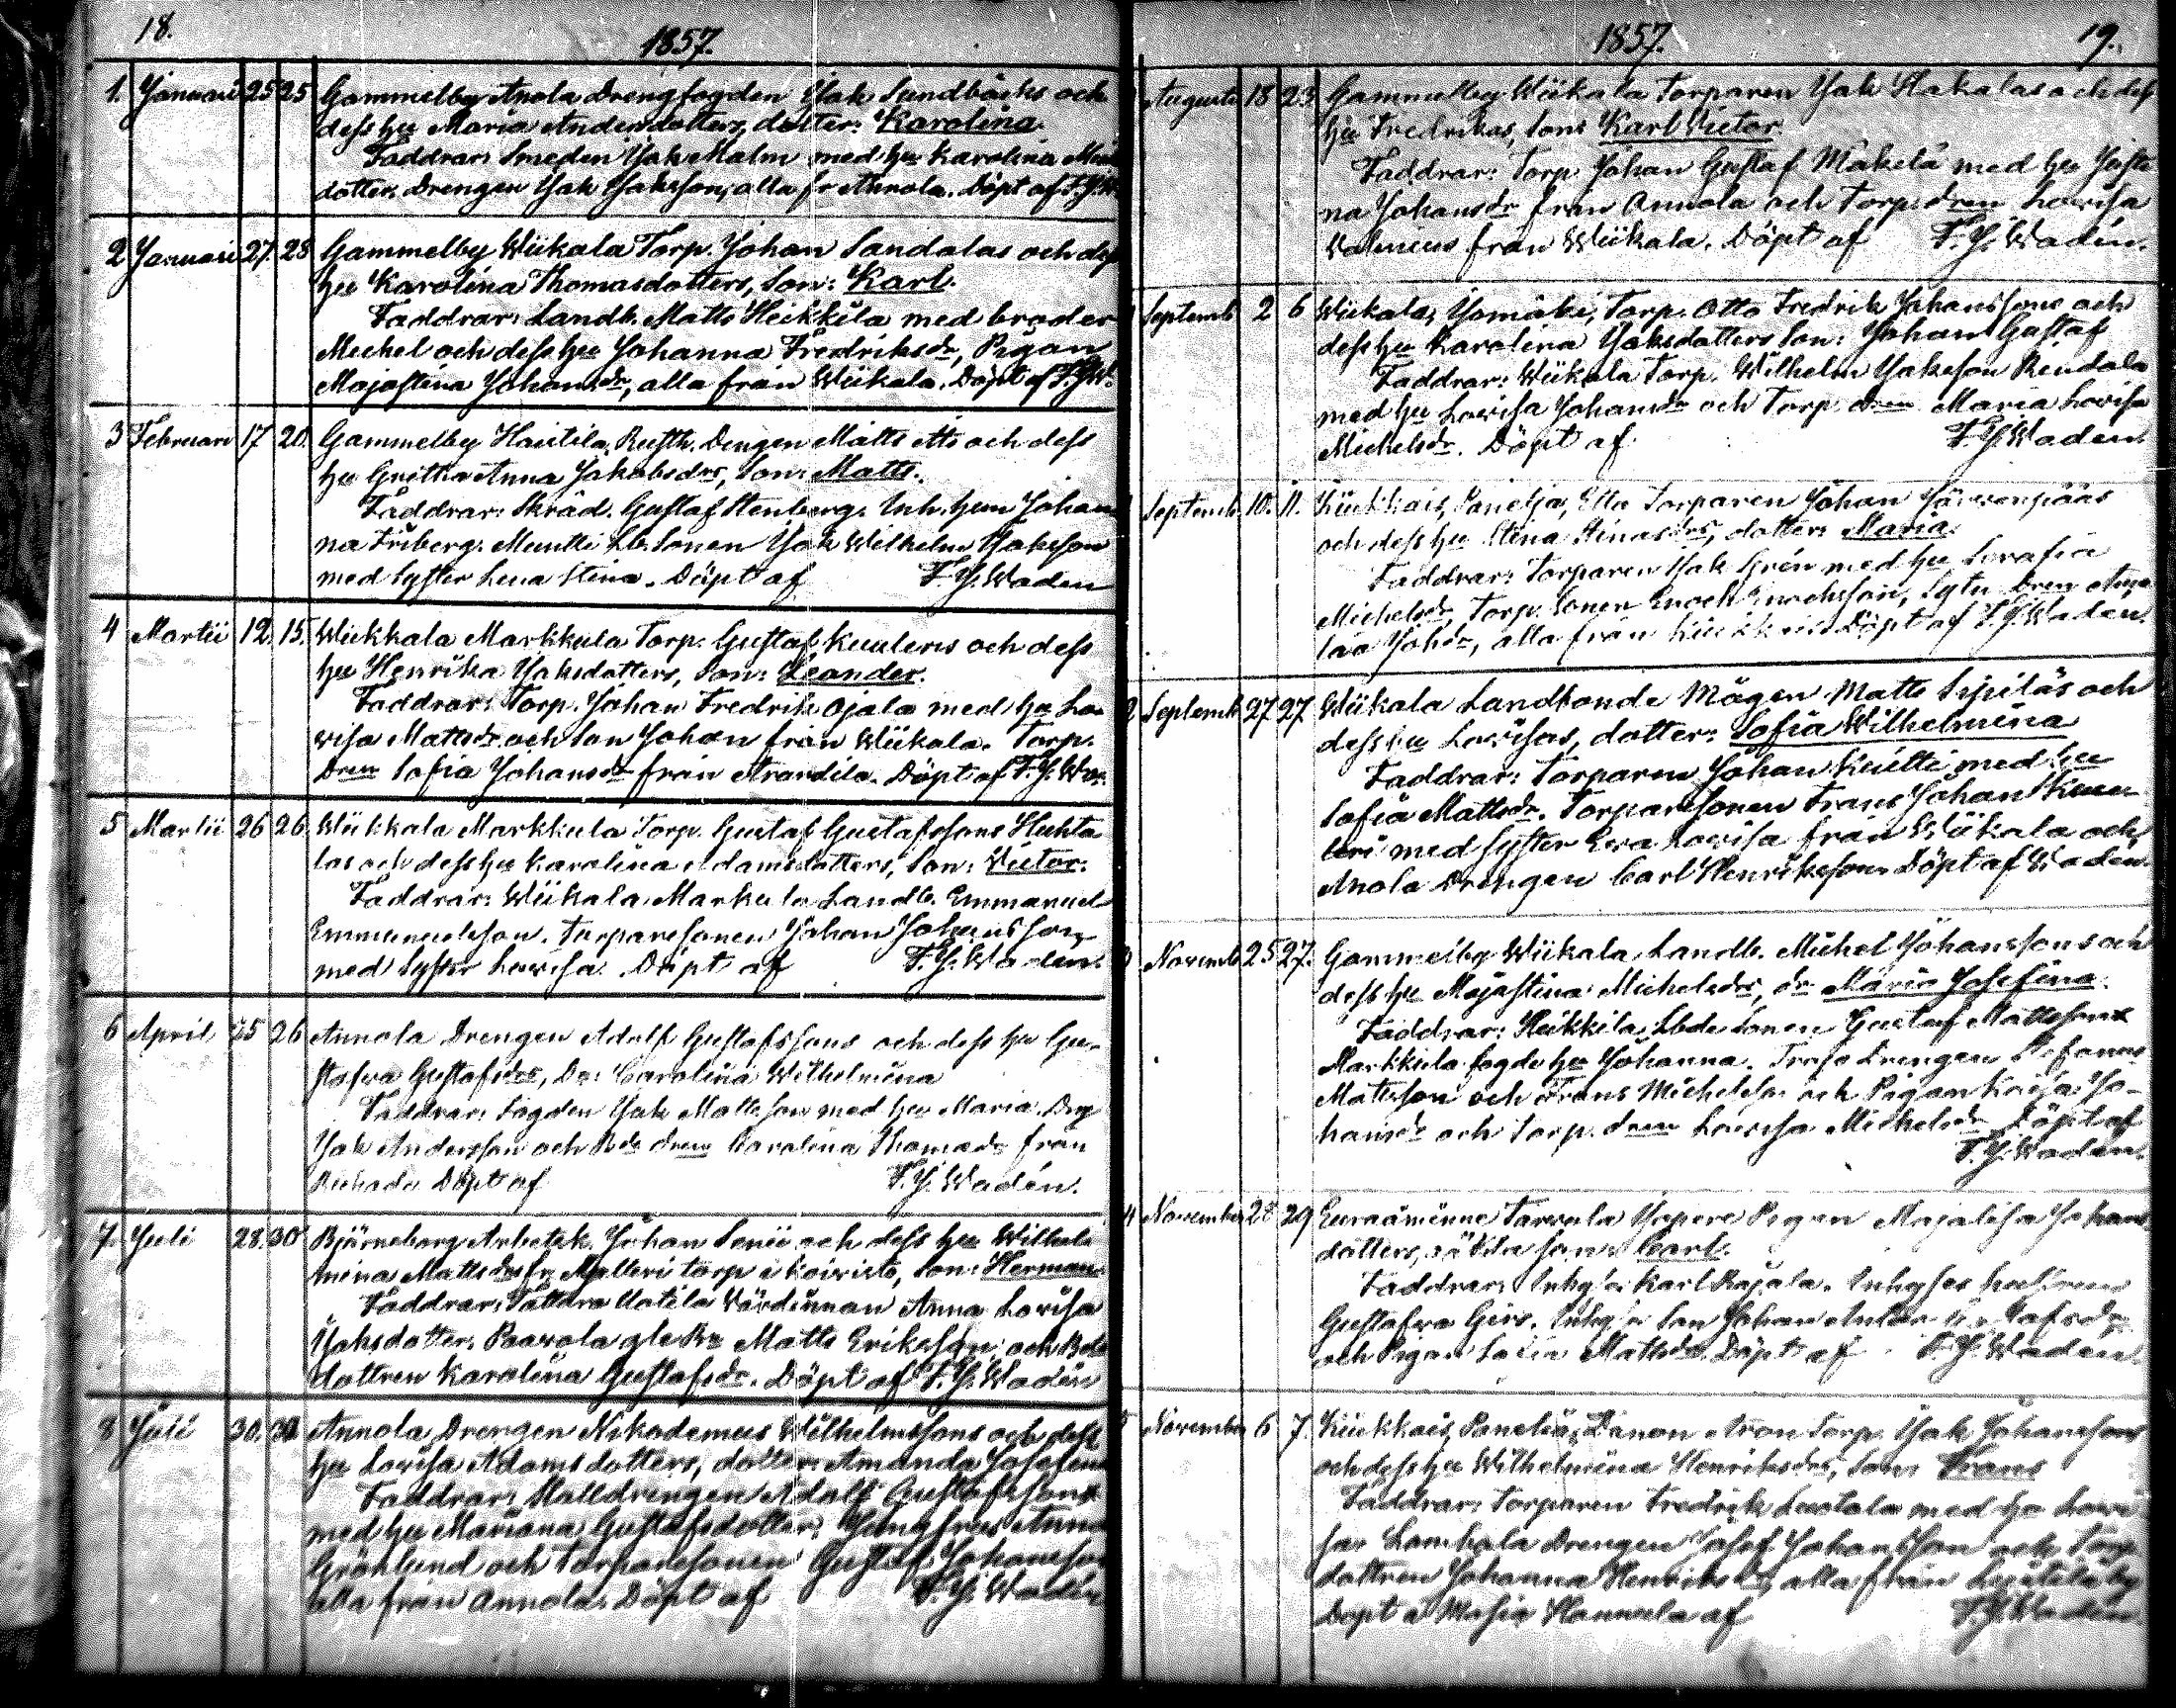 18.
1857.
1. Januari 25 25 Gammelby Anola Drengfogden Isak Sundbäcks och
dess hu Maria Andersdotters, dotter: Karolina.
Faddrar: Smeden Isak Malm med hu Karolina
dotter. Drengen Isak Isaksson, alla fr Annola. Döpt af F.J.W.
2 Januari 27. 28 Gammelby Wiikala Torp. Johan Sandalas och dess
hu Karolina Thomasdotters, Son: Karl.
Faddrar: Landb. Matts Heikkilä med broder
Michel och dess hu Johanna Fredriksdr, Pigan
Majastina Johansdr, alla från Wiikala. Döpt af F.J.W.
3 Februari 17 20. Gammelby Hautila, Rusth. Dengen Matts och dess
hu Gretha Anna Jakobsdrs, Son: Matts.
Faddrar: Skräd. Gustaf Stenberg. Inh. hun Johan
na Friberg. Muntti Lb. Sonen Isak Wilhelm Isaksson
med syster Lena Stina. Döpt af F.J. Waden
4 Martii 12. 15. Wiikkala Markkula Torp. Gustaf Kuuleris och dess
hu Henrika Isaksdotters, Son: Leander.
Faddrar: Torp. Johan Fredrik Ojala med hu Lo
visa Mattsdr och Son Johan från Wiikala. Torp.
Dren Sofia Johansdr från Arandila. Döpt af F.J. Wa.
5 Martii 26 26 Wiikkala Markkula Torp. Gustaf Gustafssons Huhta
las och dess hu Karolina Adamsdotters, Son: Victor.
Faddrar: Wiikala Markula Landb. Emmanuel
Emmanuelsson. Torparesonen Johan Johansson
med Syster Lovisa. Döpt af F.J. Waden.
6 April 25 26 Annola Drengen Adolf Gustafssons och dess hu Gu-
stafva Gustafsdrs, Dr: Carolina Wilhelmina
Faddrar: Fogden Isak Mattsson med hu Maria. Drg
Isak Andersson och Bds dren Carolina Thomasdr från
Döpt af F.J. Wadén.
7. Juli 28. 30 Björneborg Arbetsk. Johan Senii och dess hu Wilhel
mina Mattsdrs fr Mylleri torp i Koivisto, Son: Herman
Faddrar: Wärdinnan Anna Lovisa
Isaksdotter, Paavola gle Bn Matts Eriksson, och Bde
dottren Karolina Gustafsdr. Döpt af F.J. Wadén
8 Juli 30. 30 Annola, Drengen Nikodemus Wilhelmssons och dess
hu Lovisa Adamsdotters, dotter: Amanda Josefina
Faddrar: Stalldrengen Adolf Gustafsson
med hu Mariana Gustafsdotter, Jungfrus Anna
Grönlund och Torparesonen Gustaf Johansson
alla från Annola. Döpt af F.J. Wadén
1857.
19.
Augusti 18 23 Gammelby Wiikala Torparen Isak Hakalas och dess
hu Fredrikas, Son: Karl Victor.
Faddrar: Torp. Johan Gustaf Mäkelä med hu Justi
na Johansdr från Annola och Torp. dren Lovisa
Walmius från Wiikala. Döpt af F.J. Wadén.
Septemb 2 6 Wiikala, Isomäki, Torp. Otto Fredrik Johanssons och
dess hu Karolina Isaksdotters Son: Johan Gustaf
Faddrar: Wiikala Torp. Wilhelm Isaksson Rendala
med hu Lovisa Johansdr och Torp. dren Maria Lovisa
Michelsdr. Döpt af F.J. Waden.
Septemb. 10. 11. Kiukkais, Panelja, Torparen Johan Järvenpääs
och dess hu Stina Stinasdrs, dotter: Maria.
Faddrar: Torparen Isak Grén med hu Serafia
Michelsdr, Torp. Sonen Enoch Enochsson, Dren
Johdr, alla från Kiukkais. Döpt af F.J. Waden.
2 Septemb 27 27 Wiikala Landbonde Mågen Matts Sipiläs och
dess hu Lovisas, dotter: Sofia Wilhelmina
Faddrar: Torparen Johan Kuitti med hu
Sofia Mattsdr. Torparesonen Frans Johan Kuu
leri med syster Eva Lovisa från Wiikala och
Anola Drengen Carl Henriksson. Döpt af Waden.
Novemb 25 27. Gammelby Wiikala, Landb. Michel Johanssons och
dess hu Majastina Michelsdrs, dr Maria Josefina.
Faddrar: Heikkilä, Lbde Sonen Gustaf Mattsson
Markkula fogde hu Johanna. Drengen Stefanus
Mattsson och Frans Michelss. och Pigan Kaisa Jo-
hansdr och Torp. dren Lovisa Michelsdr Döpt af
F.J. Waden.
4 November 28 29 Euraåminne Tarvola Pigan Majalisa Johans
dotters, oäkta son: Carl.
Faddrar: Karl Rajala. Inhyses hustrun
Gustafva Girs. Son Johan
och Pigan Mattsdr. Döpt af F.J. Wadén.
November 6 7. Kiukkais, Panelia, Torp. Isak Johanssons
och dess hu Wilhelmina Henriksdrs, Son: Frans
Faddrar: Torparen Fredrik med hu Lovi
sa, Drengen Josef Johansson och Torp.
dottren Johanna Henriksdr, alla från
Döpt af F.J. Waden